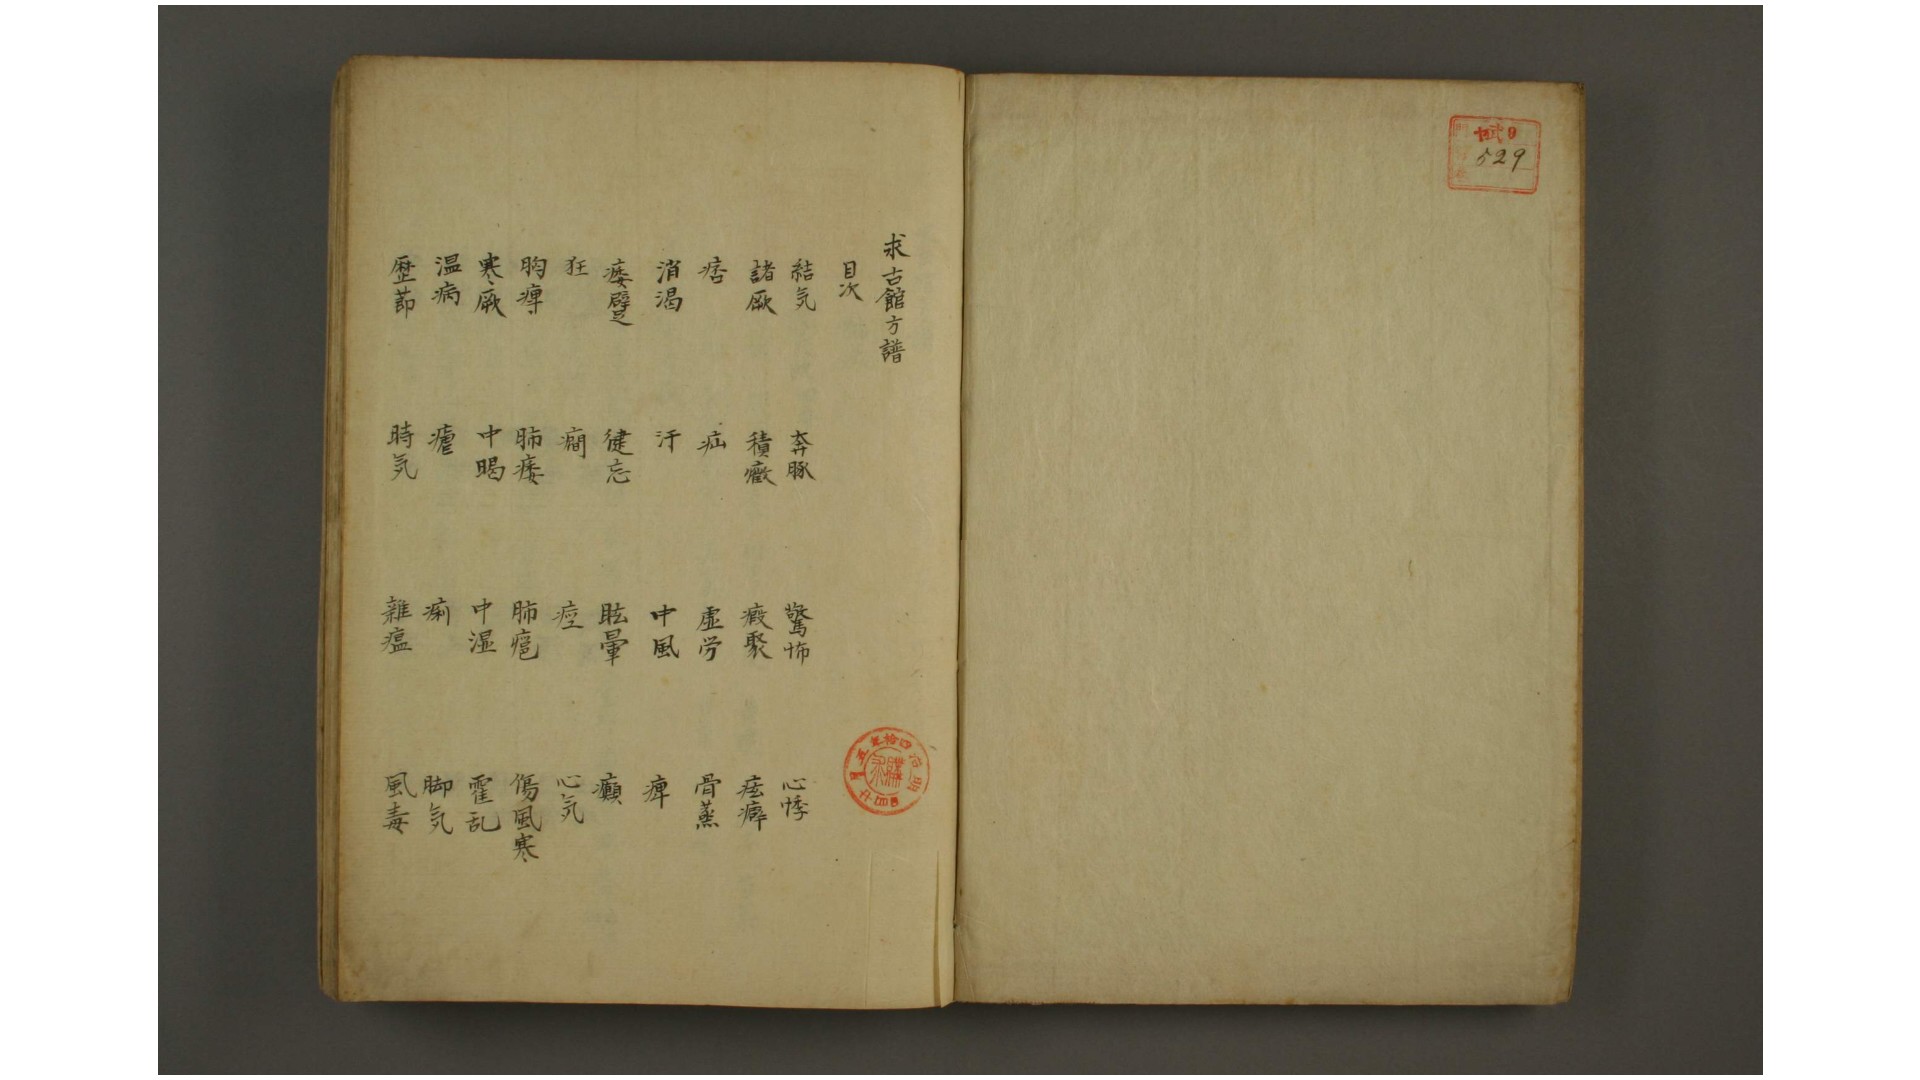 529
求古館方譜
目次
結気 奔豚 驚怖 心悸
諸厥 積癥 瘕聚 痃癖
痞 疝 虚労 骨蒸
消渇 汗 中風 痺
痿躄 健忘 眩暈 癲
狂 癇 痙 心気
胸痺 肺痿 肺癰 傷風寒
寒厥 中暍 中湿 霍乱
温病 瘧 痢 脚気
歴節 時気 雑瘟 風毒